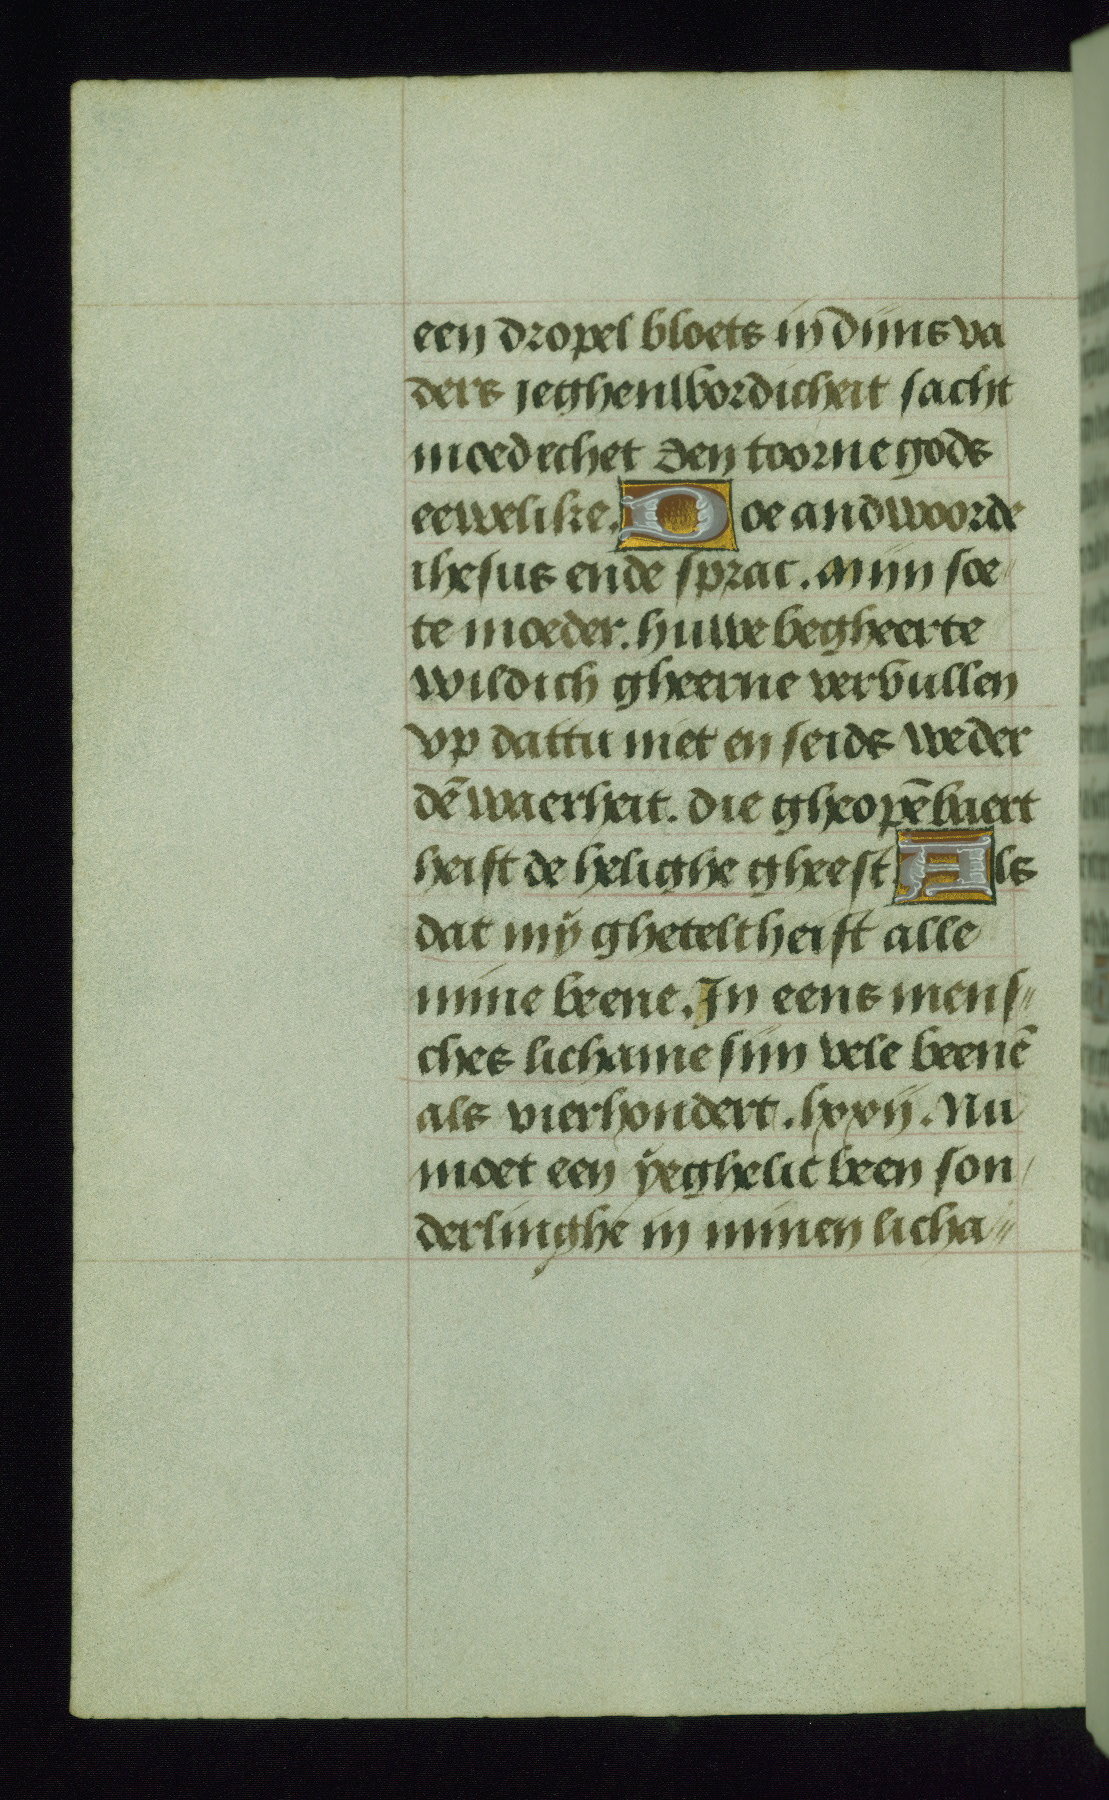 een dropel bloets in dijns va
ders jeghenwordicheit sacht
moedechet den toorne gods
eewelike. Doe andwoorde
ihesus ende sprac. Mijn soe
te moeder. huwe begheerte
wildich gheerne vervullen
vp dattu niet en seids weder
dē waerheit. die gheopēbaert
heift de helighe gheest. Als
dat mÿ gheteltheift alle
mine beene. In eens mens
ches lichame sijn vele beenē
als vierhondert. lxxij. Nu
moet een ÿeghelic been son
derlinghe in minen licha